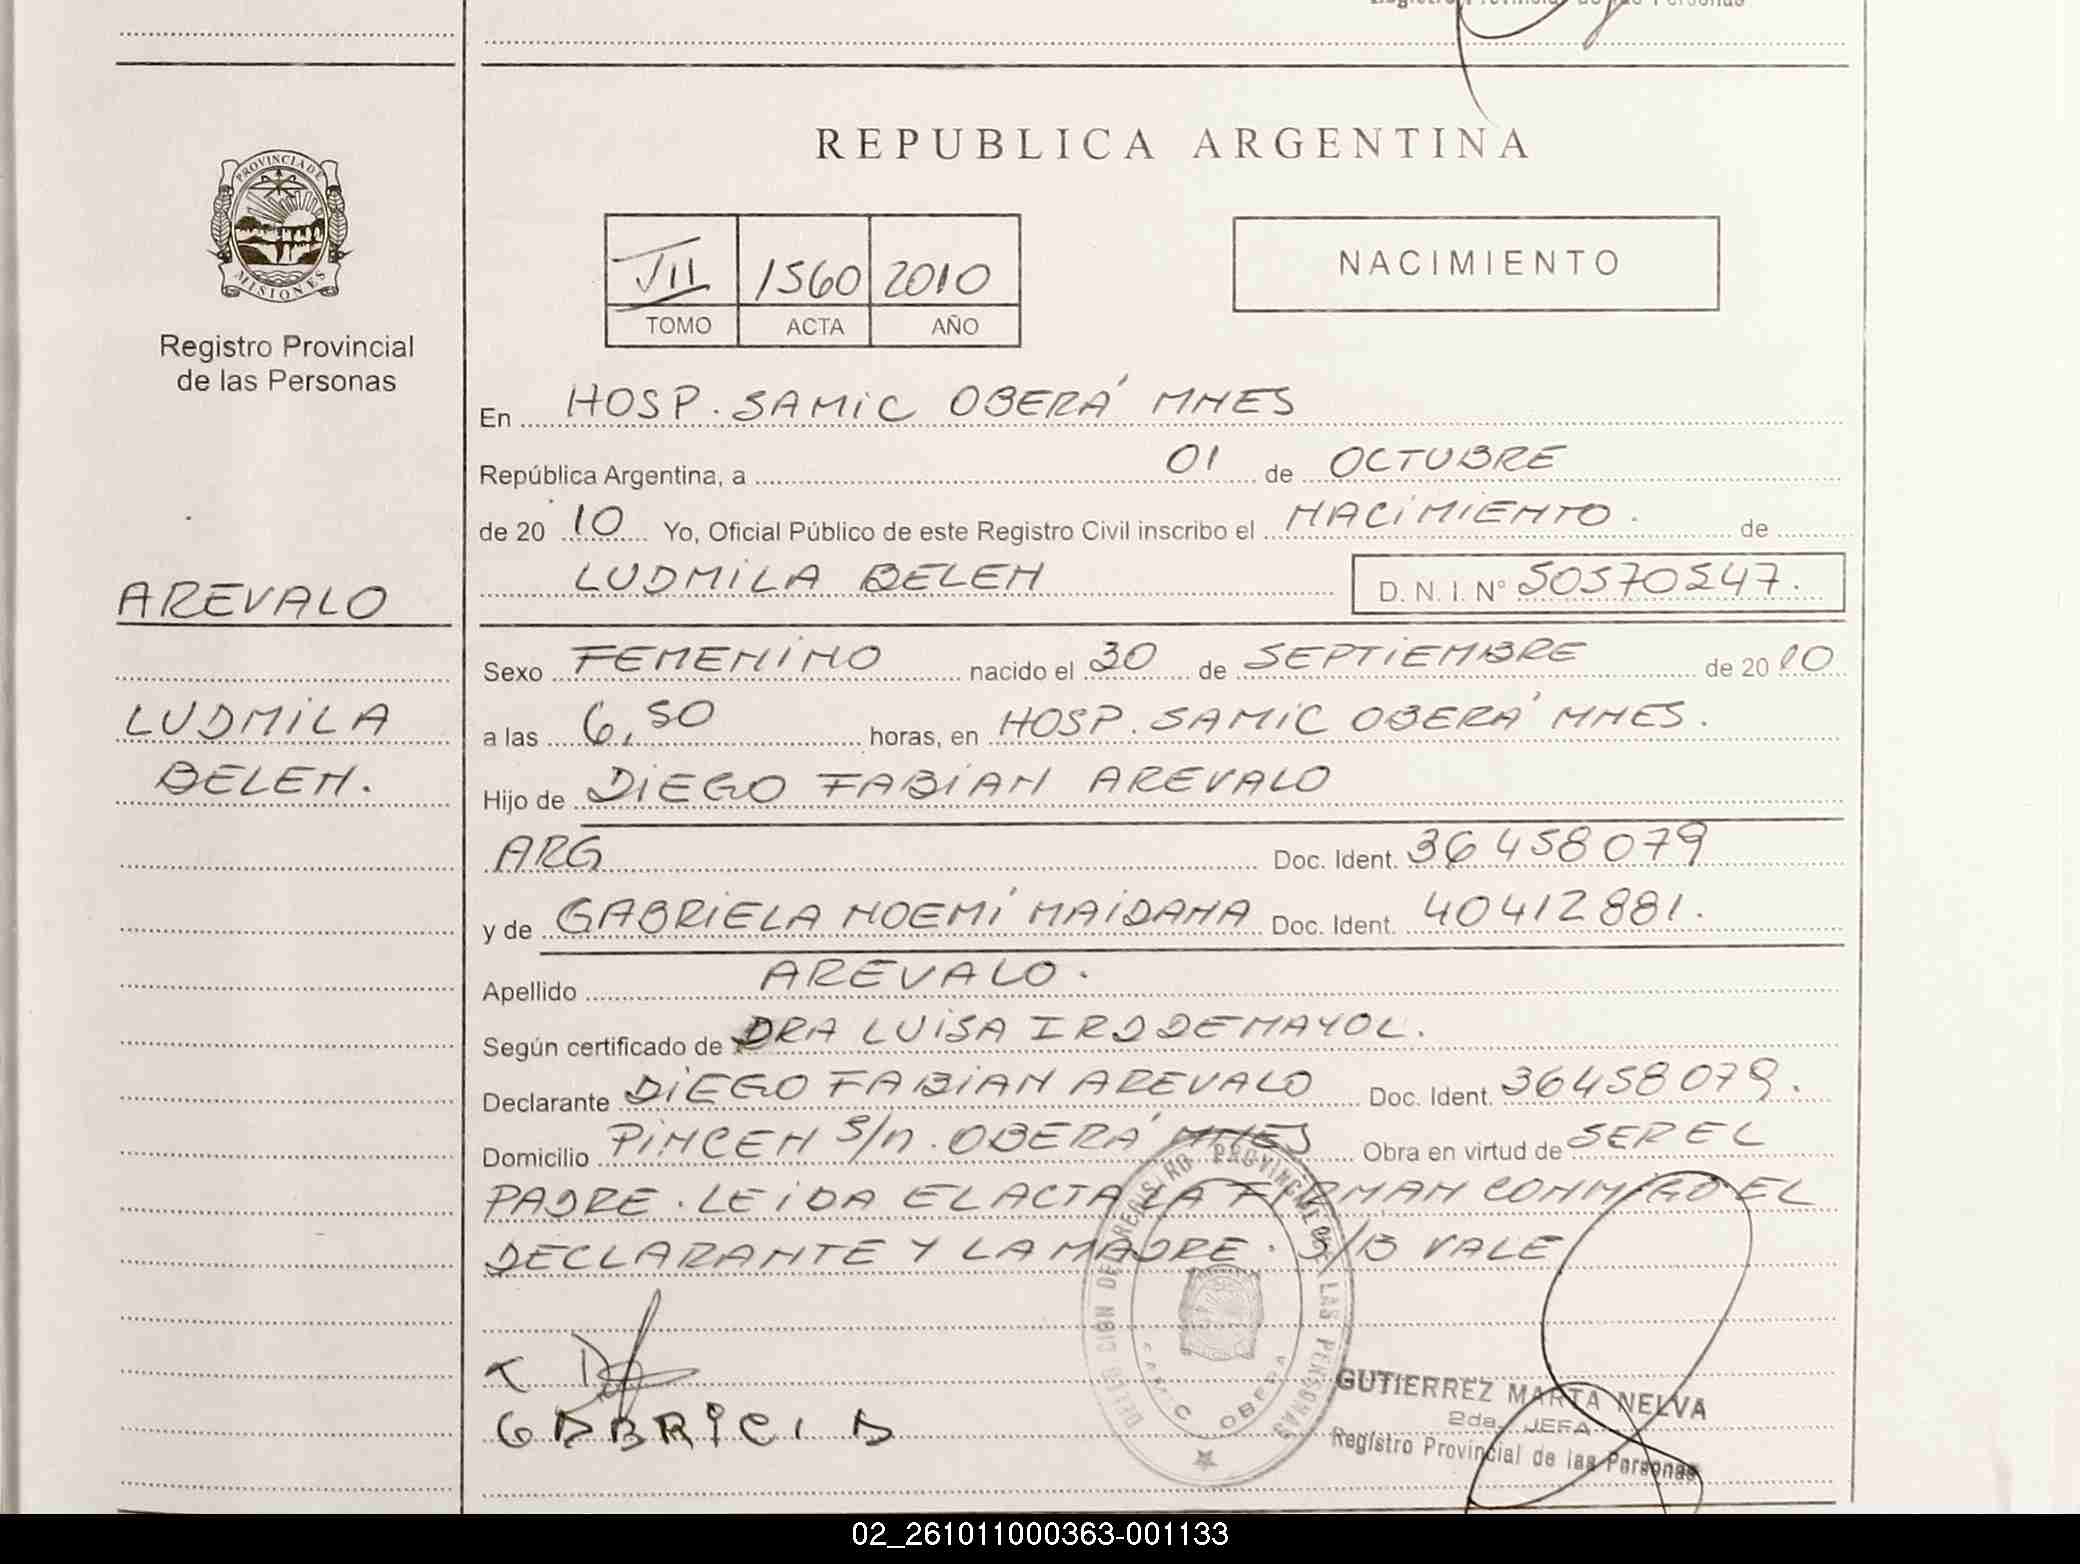 Registro Provincial de las Personas
REPUBLICA ARGENTINA
PROVINCIA DE
MISIONES
Registro Provincial
de las Personas
VII 1560 2010
TOMO ACTA AÑO
NACIMIENTO
En HOSP. SAMIC OBERÁ MNES
República Argentina, a 01 de OCTUBRE
de 20 10 Yo, Oficial Público de este Registro Civil inscribo el NACIMIENTO. de
LUDMILA BELEN D. N. I. Nº 50570247.
AREVALO
LUDMILA
BELEN.
Sexo FEMENINO nacido el 30 de SEPTIEMBRE de 20 10
a las 6,50 horas, en HOSP. SAMIC OBERÁ MNES.
Hijo de DIEGO FABIAN AREVALO
ARG Doc. Ident. 36458079
y de GABRIELA NOEMÍ MAIDANA Doc. Ident. 40412881.
Apellido AREVALO.
Según certificado de DRA LUISA
Declarante DIEGO FABIAN AREVALO Doc. Ident. 36458079.
Domicilio PINCEN S/N. OBERÁ MNES Obra en virtud de SER EL
PADRE. LEIDA EL ACTA LA FIRMAN CONMIGO EL
DECLARANTE Y LA MADRE. S/B VALE
REGISTRO PROVINCIAL DE LAS PERSONAS
SAMIC OBERA
GUTIERREZ MARTA NELVA
2da. JEFA
Registro Provincial de las Personas
02_261011000363-001133